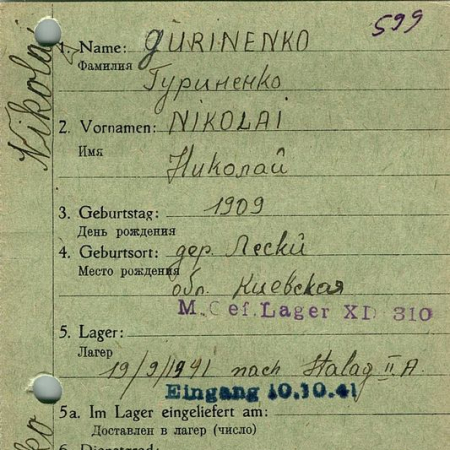 599
Nikolai
1. Name: GURINENKO
Фамилия Гуриненко
2. Vornamen: NIKOLAI
Имя Николай
3. Geburtstag: 1909
День рождения
4. Geburtsort: дер. Лески
Место рождения обл. Киевская
M. Gef. Lager XD 310
5. Lager:
Лагерь
19/9/1941 nach Stalag II. A.
Eingang 10.10.41
5a. Im Lager eingeliefert am:
Доставлен в лагерь (число)
ko